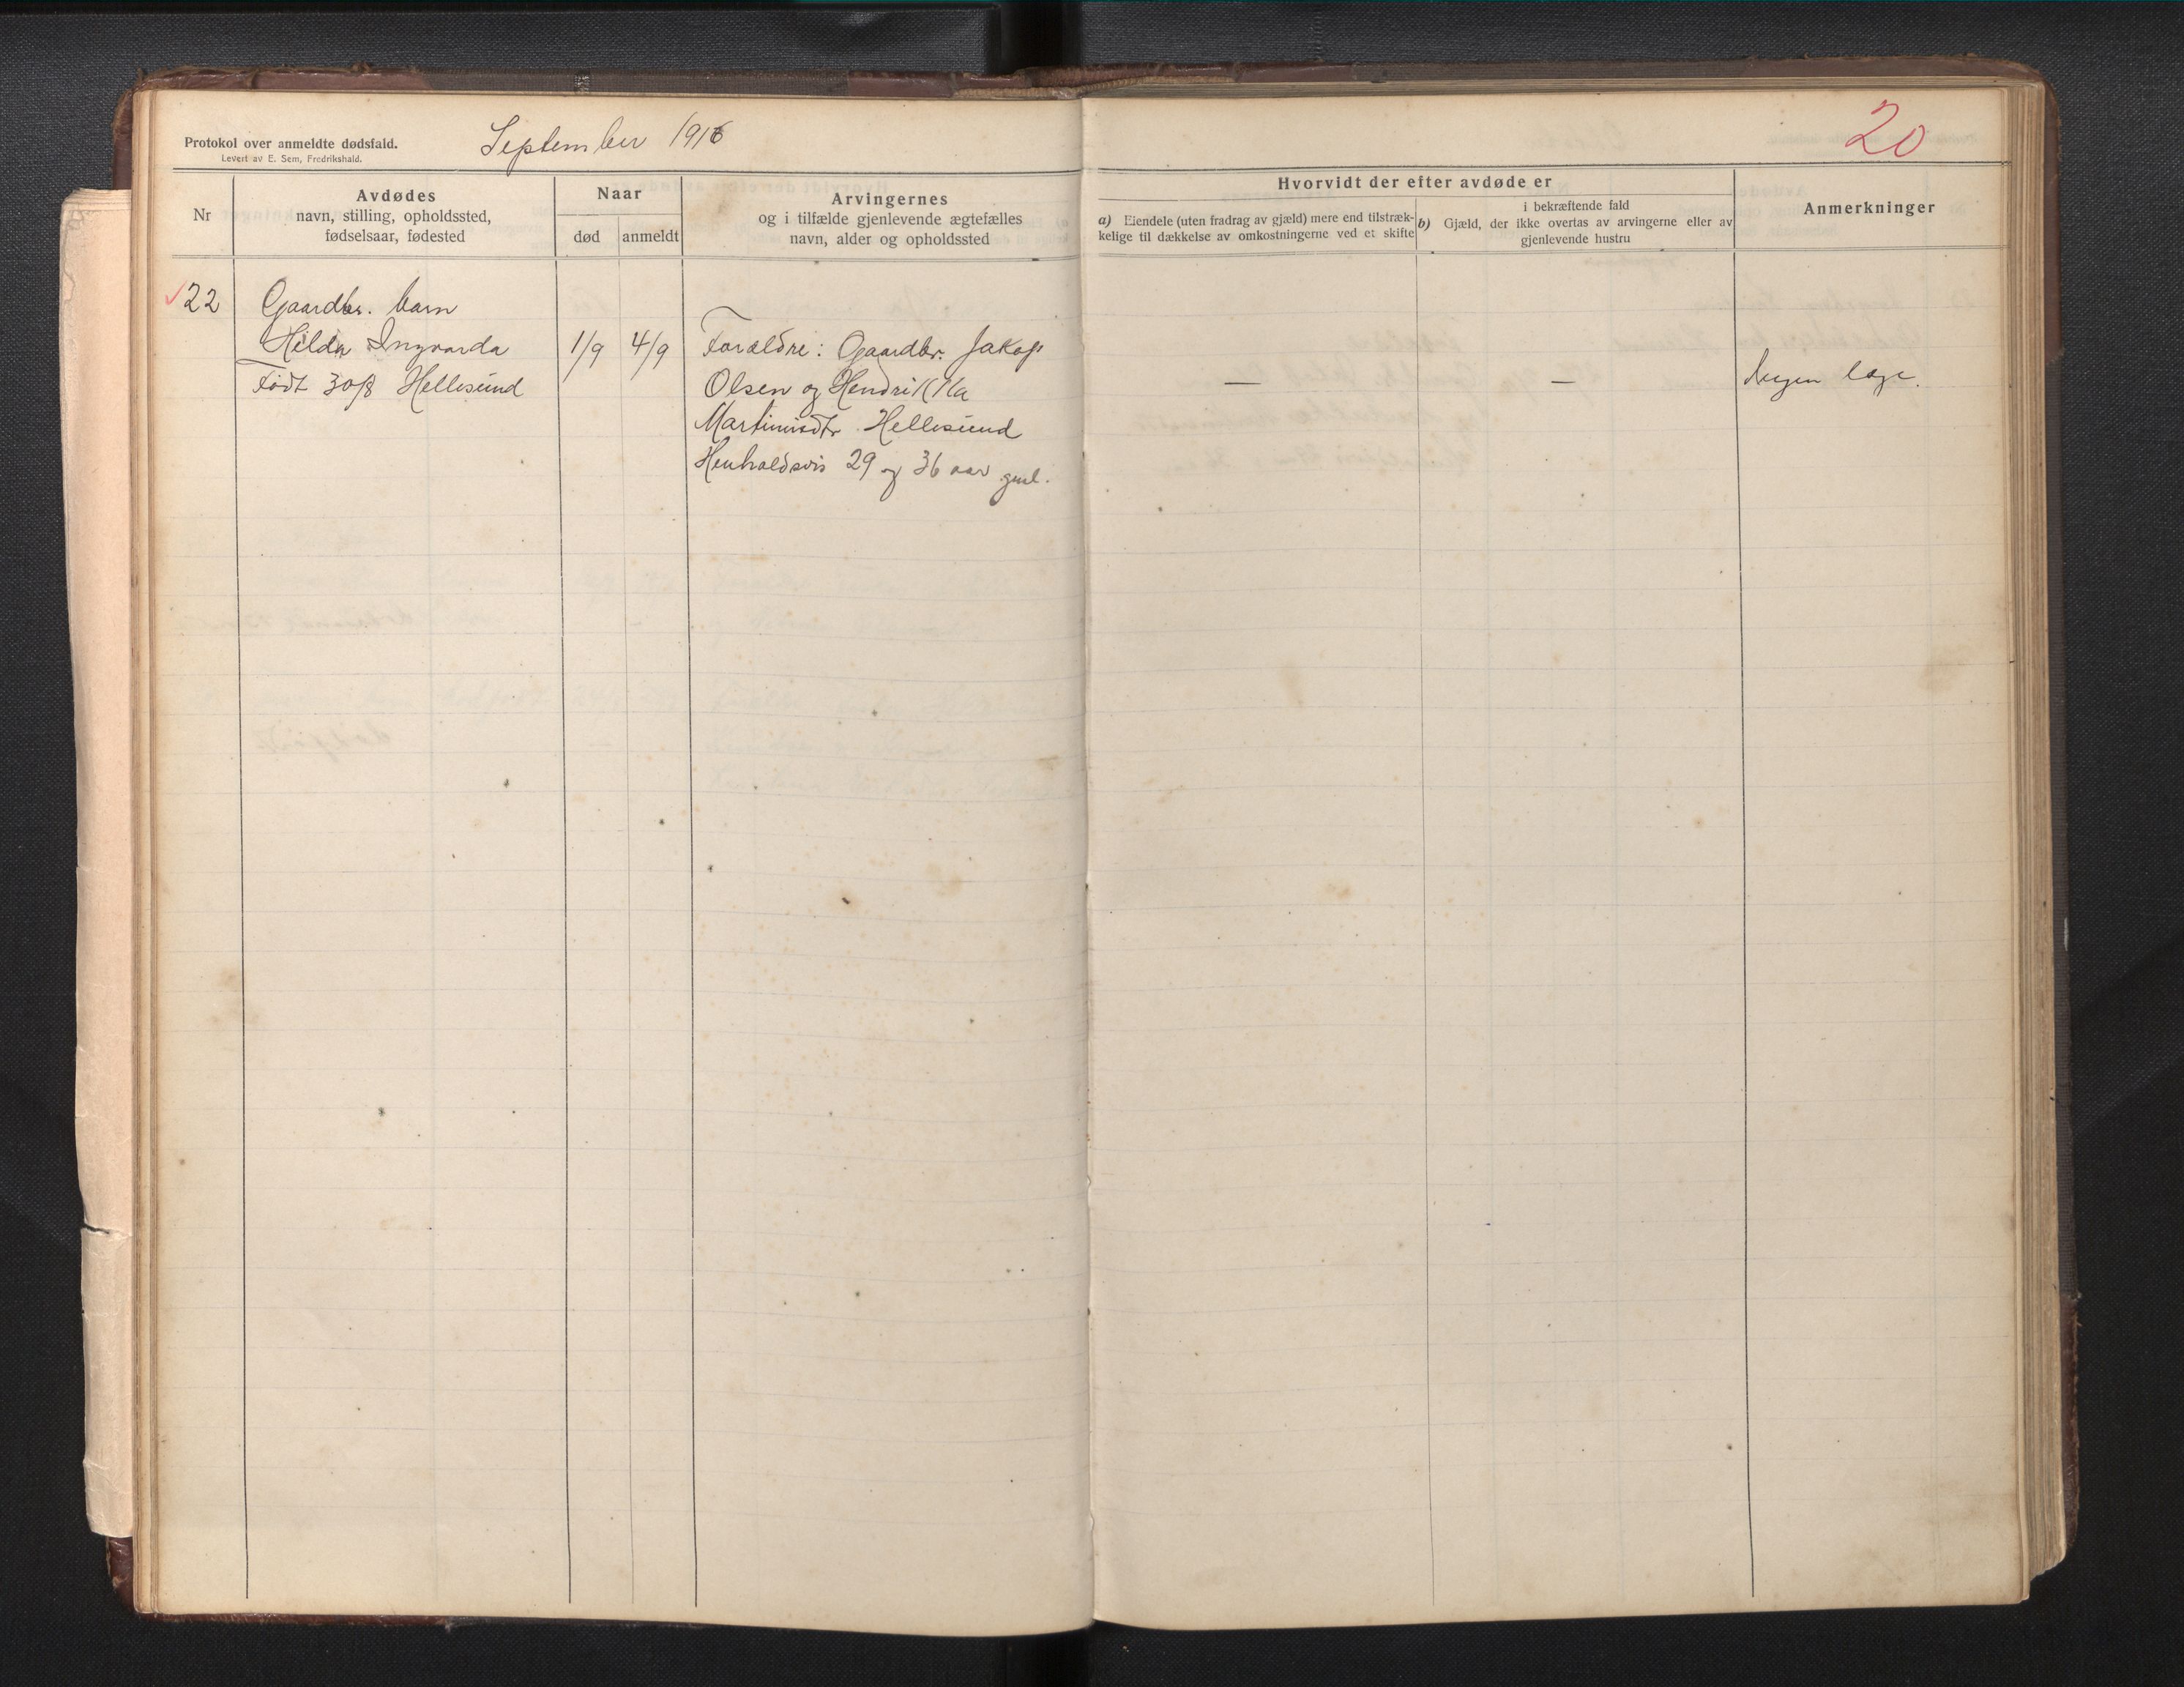 Protokol over anmeldte dødsfald.
Levert av E. Sem, Fredrikshald.
September 1916
20
Nr
Avdødes
navn, stilling, opholdssted,
fødselsaar, fødested
Naar
død
anmeldt
Arvingernes
og i tilfælde gjenlevende ægtefælles
navn, alder og opholdssted
Hvorvidt der efter avdøde er
a) Eiendele (uten fradrag av gjæld) mere end tilstræk-
kelige til dækkelse av omkostningerne ved et skifte
i bekræftende fald
b) Gjæld, der ikke overtas av arvingerne eller av
gjenlevende hustru
Anmerkninger
22
Gaardbr. barn
Hilda Ingvarda
Født 30/8 Hellesund
1/9
4/9
Forældre: Gaardbr. Jakop
Olsen og Hendrikka
Martinusdtr Hellesund
Henholdsvis 29 og 36 aar gml.
—
—
Ingen læge.